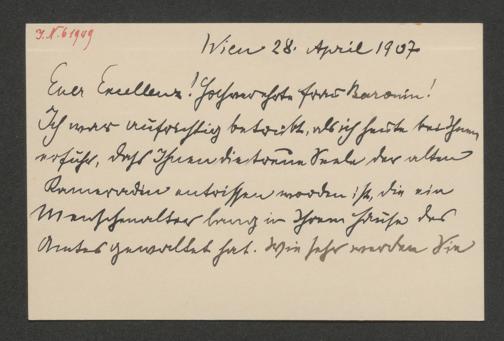 J.N. 61949
Wien 28. April 1907
Euer Excellenz! Hochverehrte Frau Baronin!
Ich war aufrichtig betrübt, als ich heute bei Ihnen
erfuhr, daß Ihnen die treue Seele der alten
Kameradin entrissen worden ist, die ein
Menschenalter lang in Ihrem Hause des
Amtes gewaltet hat. Wie sehr werden Sie